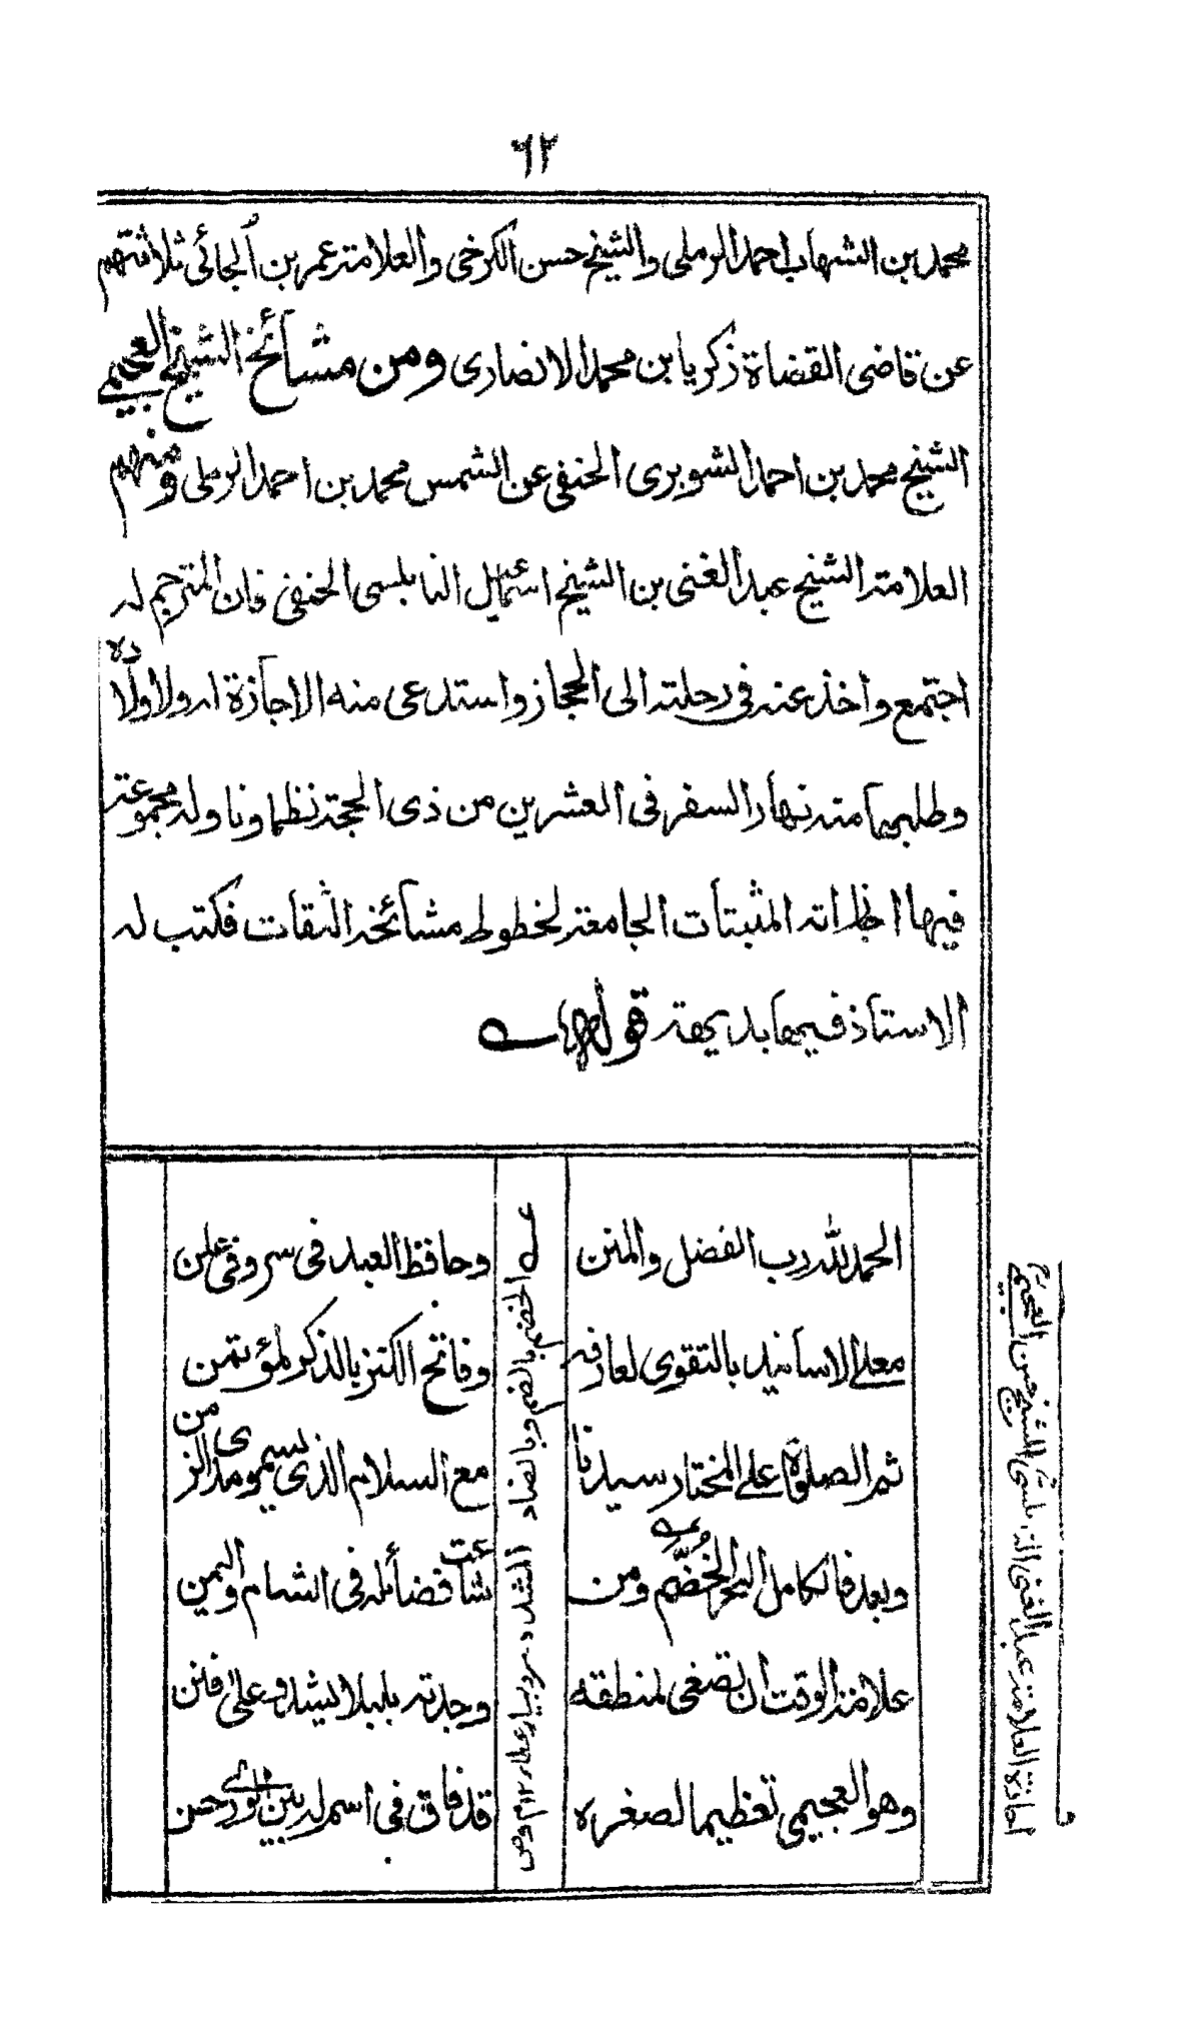 ٦٢
محمد بن الشهاب احمد الرملی والشیخ حسن الکرخی والعلامة عمر بن الجائی ثلاثتهم
عن قاضی القضاة زکریا بن محمد الانصاری ومن مشائخ الشیخ العجیمی
الشیخ محمد بن احمد الشوبری الحنفی عن الشمس محمد بن احمد الرملی ومنهم
العلامة الشیخ عبد الغنی بن الشیخ اسمعیل النابلسی الحنفی فان المترجم له
اجتمع واخذ عنه فی رحلته الی الحجاز واستدعی منه الاجازة له ولاولاده
وطلبها منه نهار السفر فی العشرین من ذی الحجة نظما وناوله مجموعة
فیها اجازاته المثبتات الجامعة لخطوط مشائخه الثقات فکتب له
الاستاذ فیها بدیهة قوله
الحمد لله رب الفضل والمنن
وحافظ العبد فی سر وفی علن
معلی الاسانید بالتقوی لعارفه
وفاتح الکنز بالذکر لمؤتمن
ثم الصلوة علی المختار سیدنا
مع السلام الذی یسمو مدی الزمن
وبعد فالکامل البحر الخضم ومن
شاعت فضائله فی الشام والیمن
علامة الوقت ان تصغی لمنطقه
وجدته بلبلا یشدو علی فنن
وهو العجیمی تعظیما لصغره
قد فاق فی اسم له بین الوری حسن
عه الخضم بالضم وبالضاد المشدد بسیار عطا ١٢ م وص
اجازة العلامة عبد الغنی النابلسی الشیخ حسن العجیمی